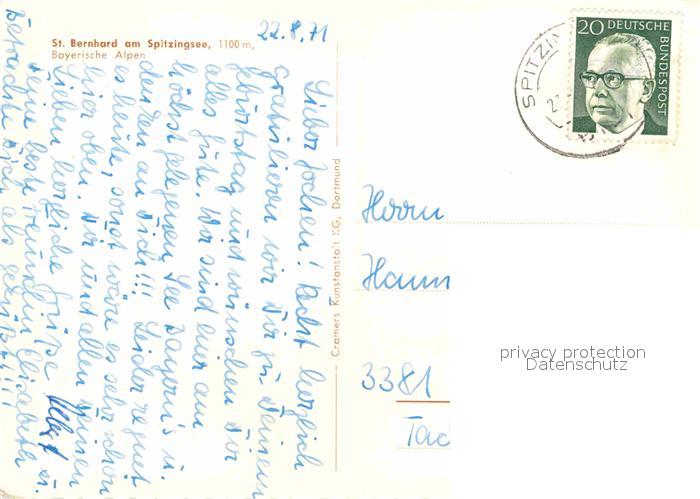 St. Bernhard am Spitzingsee, 1100 m,
Bayerische Alpen
22.8.71
Lieber Jochen! Recht herzlich
gratulieren wir Dir zu Deinem
Geburtstag und wünschen Dir
alles Gute. Wir sind hier am
höchst gelegenen See Bayern's u.
denken an Dich!!! Leider regnet
es heute, sonst wäre es sehr schön
hier oben. Dir und allen Deinen
Lieben herzliche Grüße
Deine beste Freundin Elisabeth
Betrachte Dich als geküßt!!!
Cramers Kunstanstalt KG, Dortmund
SPITZIN
20 DEUTSCHE
BUNDESPOST
Herrn
Hann
3381
privacy protection
Datenschutz